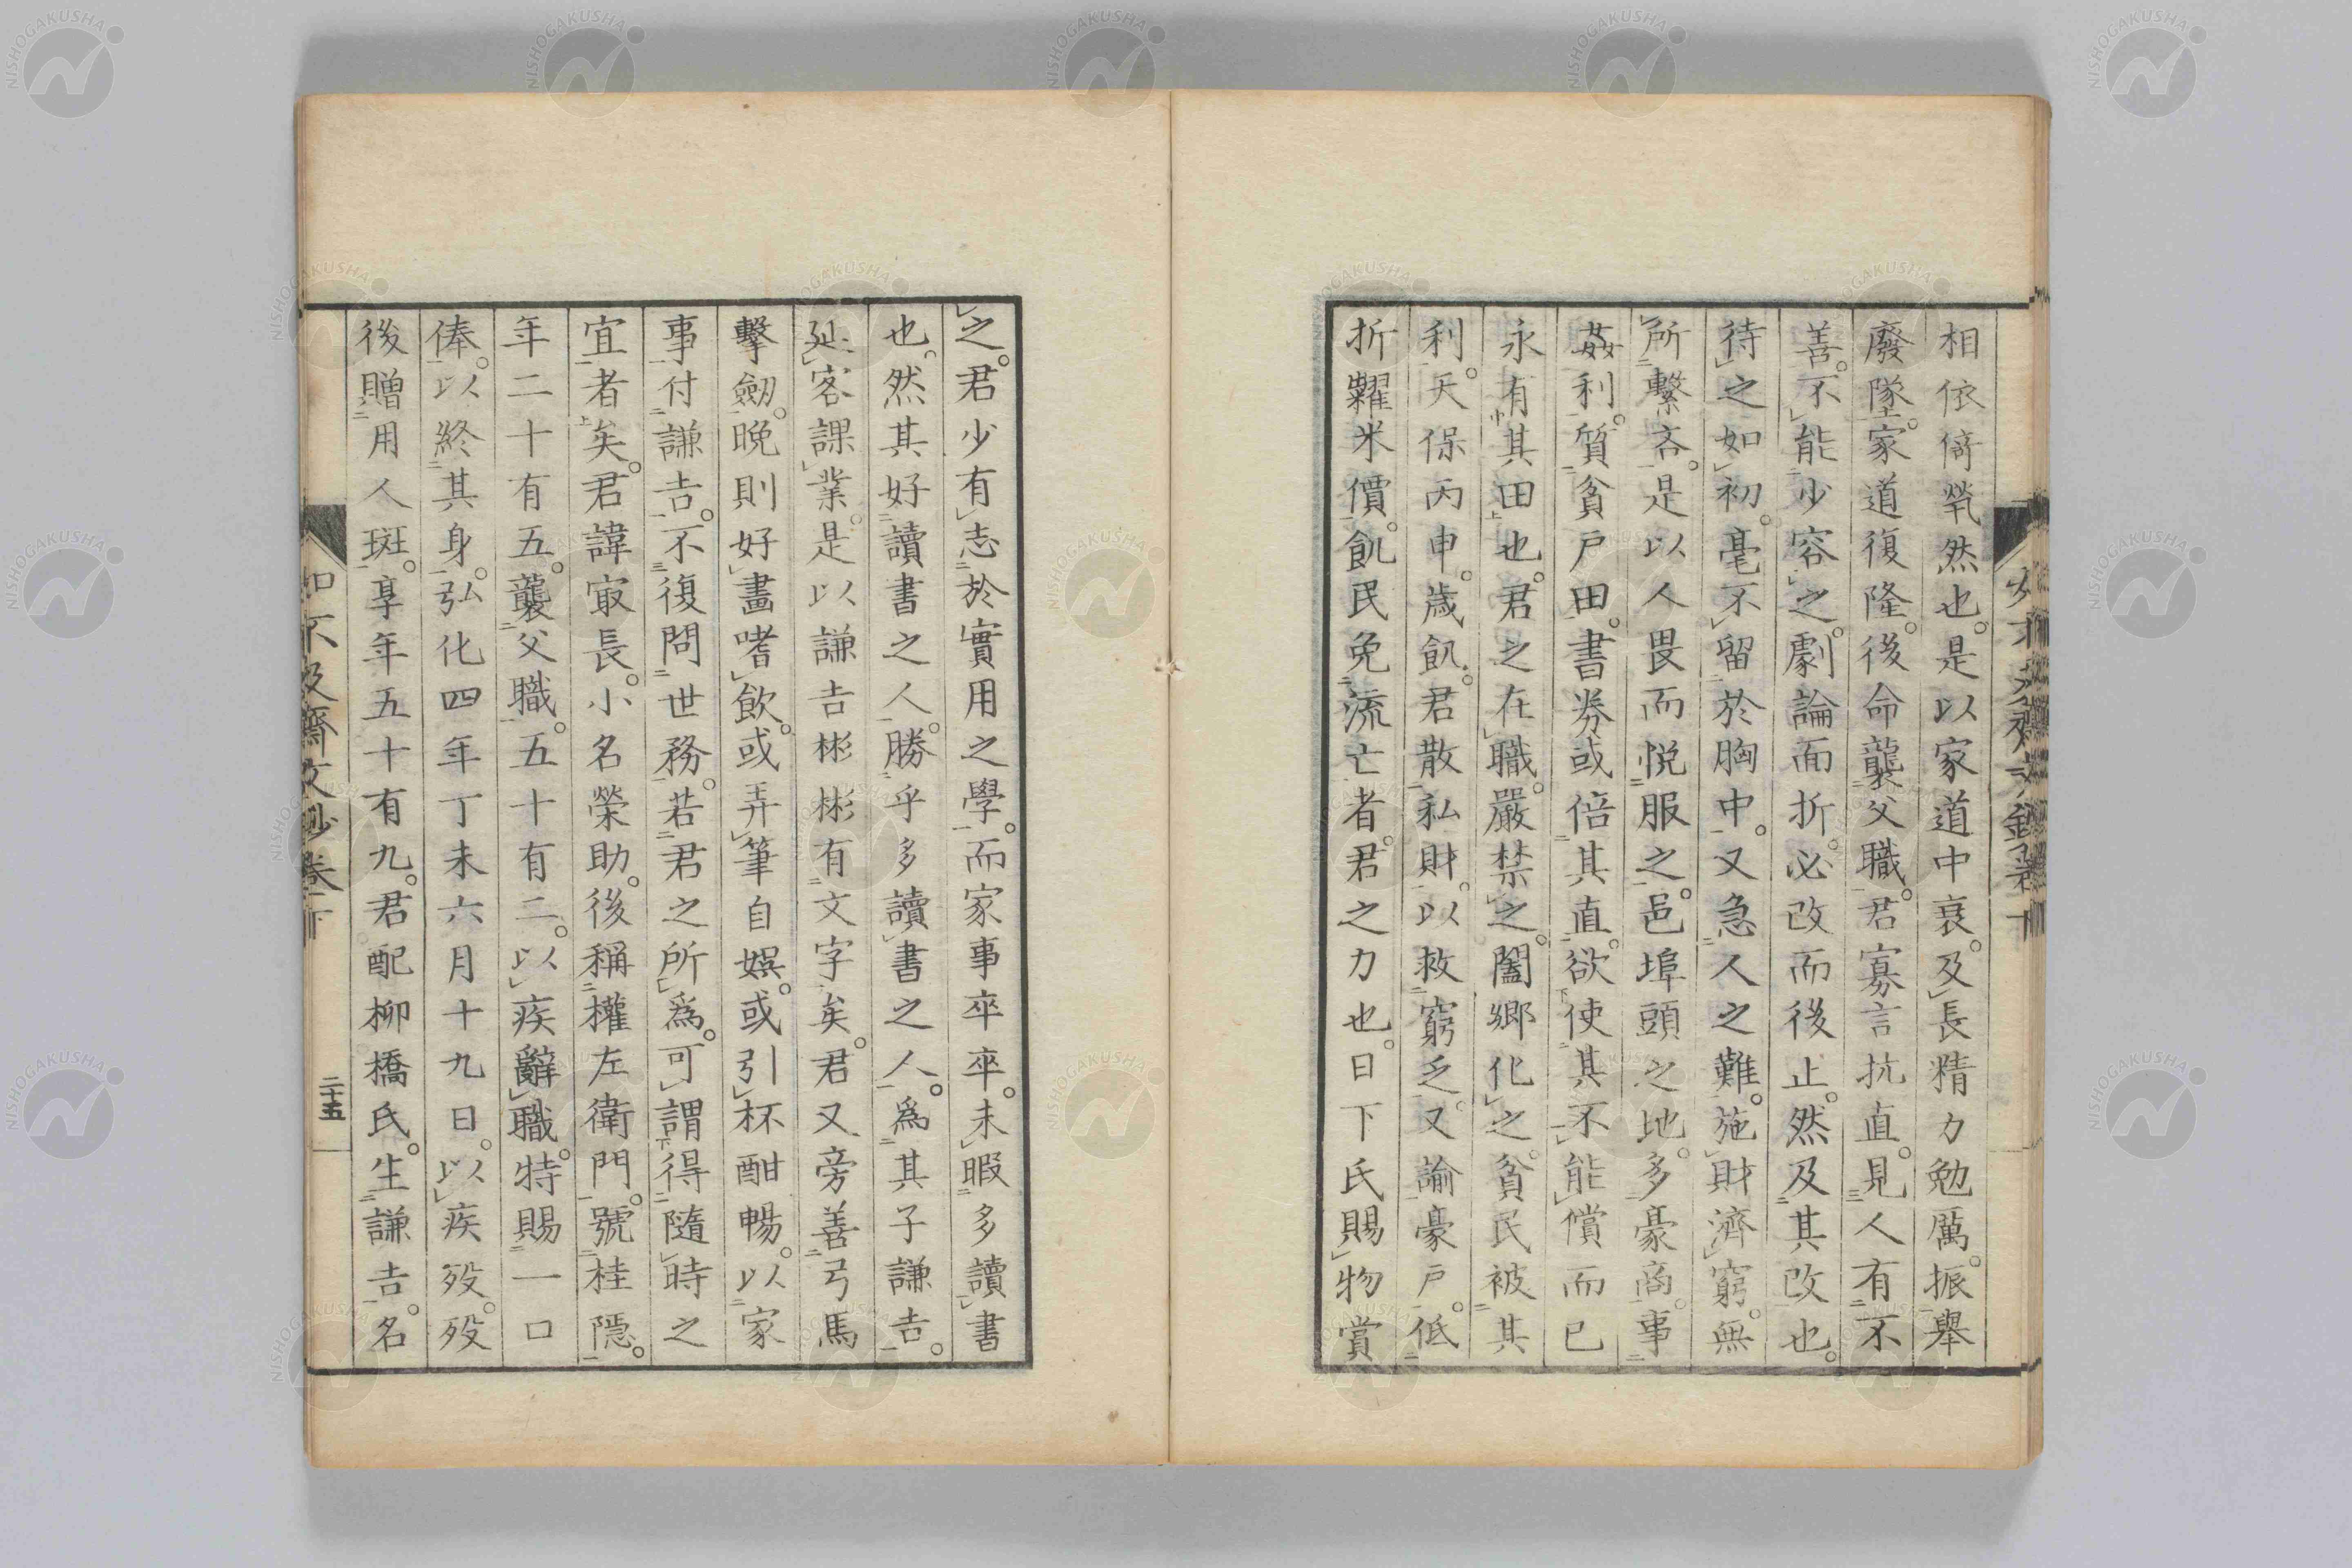 相依倚煢然也。是以家道中衰。及長精力勉厲。振舉
廢墜。家道復隆。後命襲父職。君寡言抗直。見人有不
善。不能少容之。劇論面折。必改而後止。然及其改也。
待之如初。毫不留於胸中。又急人之難。施財濟窮。無
所繫吝。是以人畏而悅服之。邑埠頭之地。多豪商。事
姦利。質貧戶田。書券或倍其直。欲使其不能償而已
永有其田也。君之在職。嚴禁之。闔鄉化之。貧民被其
利。天保丙申。歲飢。君散私財。以救窮乏。又諭豪戶。低
折糶米價。飢民免流亡者。君之力也。日下氏賜物賞
之。君少有志於實用之學。而家事卒卒。未暇多讀書
也。然其好讀書之人。勝乎多讀書之人。爲其子謙吉。
延客課業。是以謙吉彬彬有文字矣。君又旁善弓馬
擊劒。晚則好畫嗜飲。或弄筆自娛。或引杯酣暢。以家
事付謙吉。不復問世務。若君之所爲。可謂得隨時之
宜者矣。君諱㝡長。小名榮助。後稱權左衛門。號桂隱。
年二十有五。襲父職。五十有二。以疾辭職。特賜一口
俸。以終其身。弘化四年丁未六月十九日。以疾歿。歿
後贈用人班。享年五十有九。君配柳橋氏。生謙吉。名
如不及齋文鈔卷下
二十五